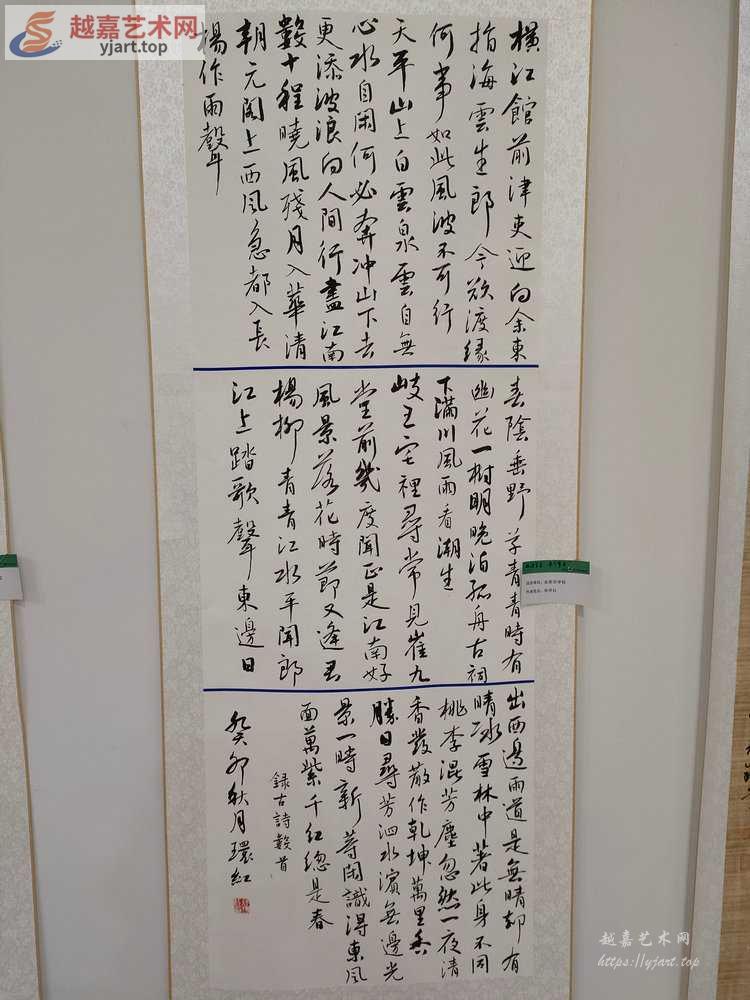 越嘉艺术网
yjart.top
橫江館前津吏迎向余東
指海雲生郎今欲渡緣
何事如此風波不可行
天平山上白雲泉雲自無
心水自閑何必奔冲山下去
更添波浪向人間行盡江南
數十程曉風殘月入華清
朝元閣上西風急都入長
楊作雨聲
春陰垂野草青青時有
幽花一樹明晚泊孤舟古祠
下滿川風雨看潮生
岐王宅裡尋常見崔九
堂前幾度聞正是江南好
風景落花時節又逢君
楊柳青青江水平聞郎
江上踏歌聲東邊日
出西邊雨道是無晴却有
晴冰雪林中著此身不同
桃李混芳塵忽然一夜清
香發散作乾坤萬里春
勝日尋芳泗水濱無邊光
景一時新等閑識得東風
面萬紫千紅總是春
録古詩數首
癸卯秋月環紅
越嘉艺术网
https://yjart.top